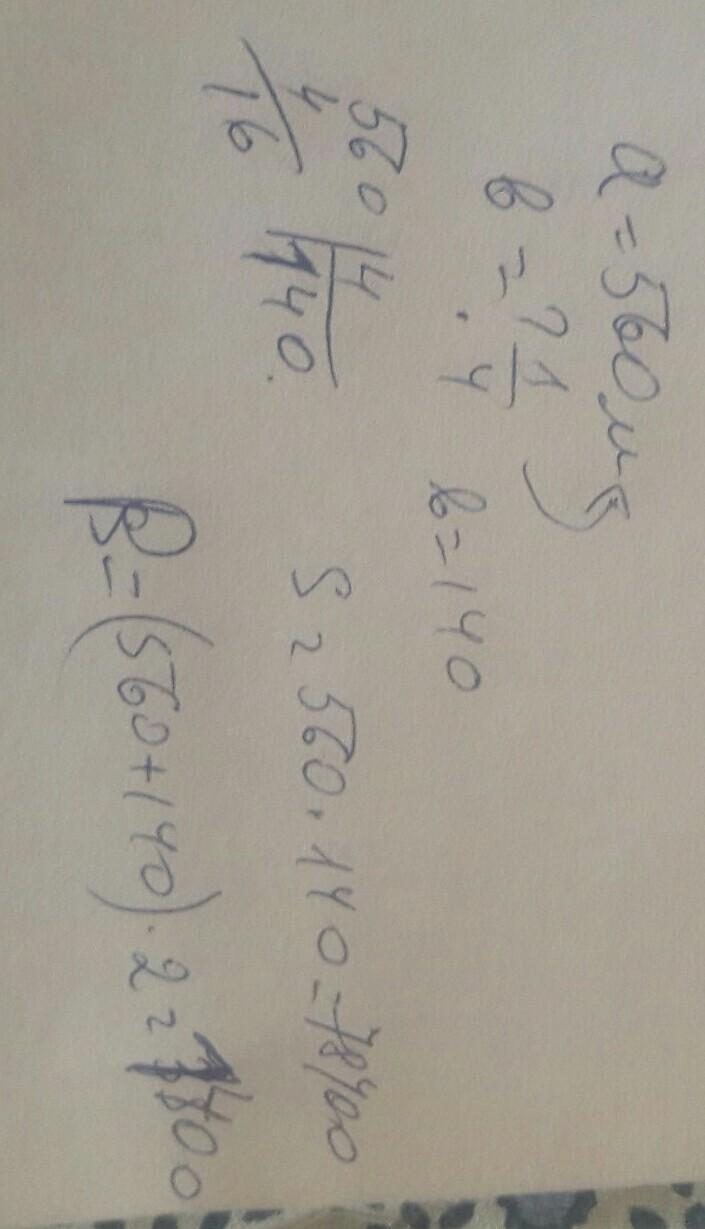 a = 560 м
в = ? 1/4
. 4
в = 140
560 | 4
4 | 140
16
S = 560 · 140 = 78400
P = (560 + 140) · 2 = 1400